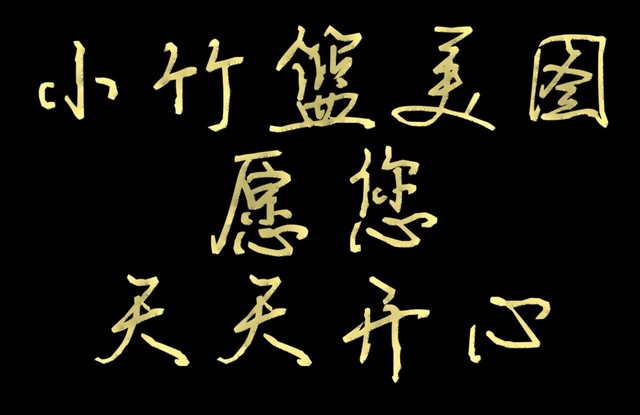 小竹篮美图
愿您
天天开心